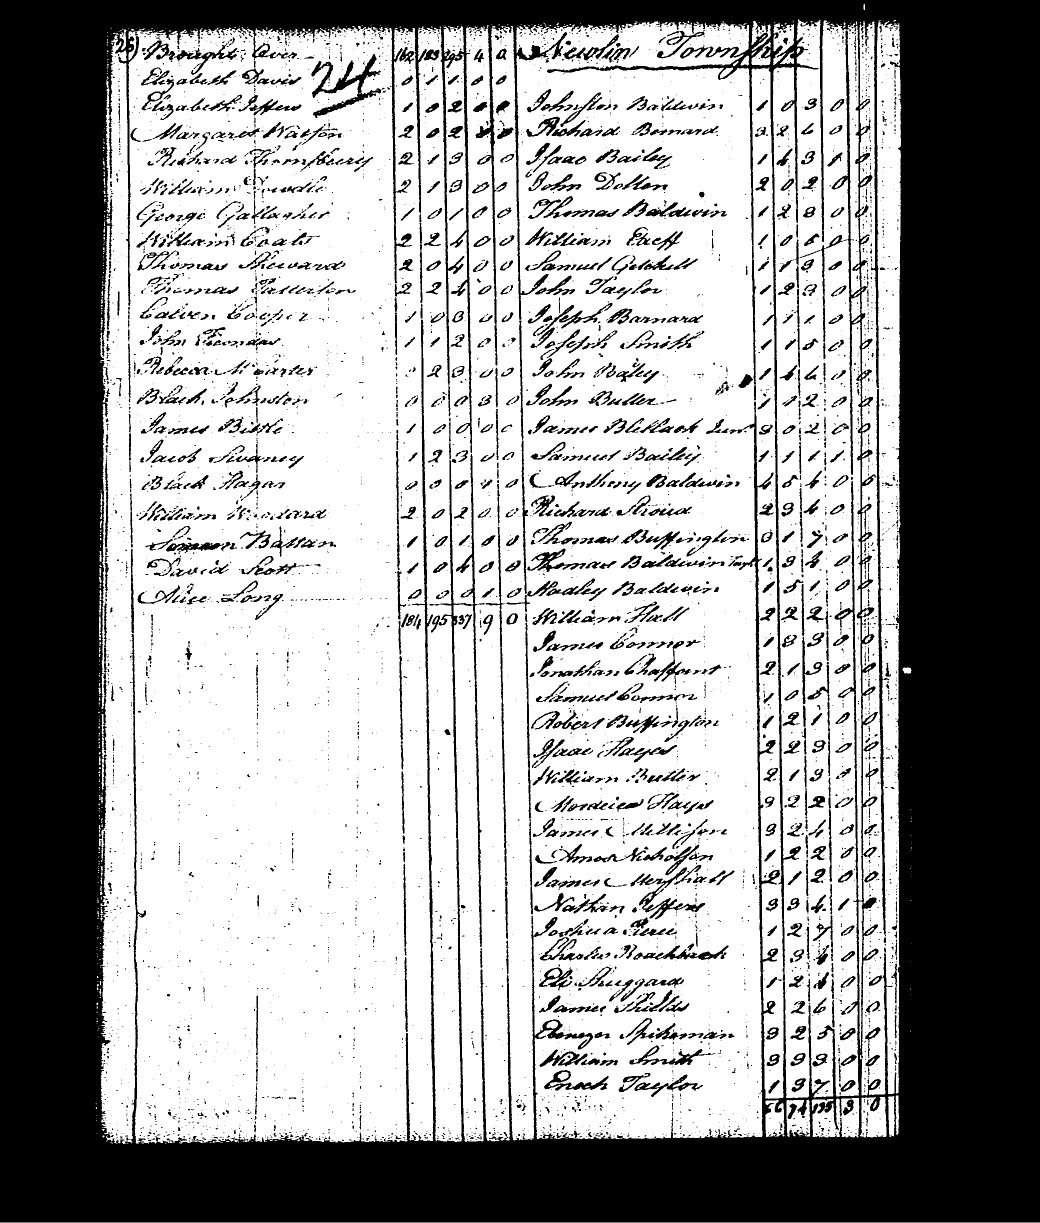 25) Brought Over 162 183 295 4 0
24
Elizabeth Davis 0 1 1 0 0
Elizabeth Jeffers 1 0 2 0 0
Margaret Watson 2 0 2 0
Richard Thornsbury 2 1 3 0 0
William Dowdle 2 1 3 0 0
George Gallagher 1 0 1 0 0
William Coats 2 2 4 0 0
Thomas Sheward 2 0 4 0 0
Thomas Patterson 2 2 4 0 0
Calven Cooper 1 0 3 0 0
John 1 1 2 0 0
Rebecca McCarter 0 2 3 0 0
Black Johnston 0 0 0 3 0
James Bistle 1 0 0 0 0
Jacob Swaney 1 2 3 0 0
Black Hagar 0 0 0 1 0
William Woodard 2 0 2 0 0
Simeon Battan 1 0 1 0 0
David Scott 1 0 4 0 0
Alice Long 0 0 0 1 0
184 195 337 9 0
Newlin Township
Johnston Baldwin 1 0 3 0 0
Richard Bernard 3 2 6 0 0
Isaac Bailey 1 4 3 1 0
John Dolten 2 0 2 0 0
Thomas Baldwin 1 2 3 0 0
William 1 0 5 0 0
Samuel Getchell 1 1 3 0 0
John Taylor 1 2 3 0 0
Joseph Barnard 1 1 1 0 0
Joseph Smith 1 1 5 0 0
John Baley 1 4 6 0 0
John Buller 1 1 2 0 0
James Bletlack Junr 3 0 2 0 0
Samuel Bailey 1 1 1 1 0
Anthony Baldwin 4 5 4 0 0
Richard Stroud 2 3 4 0 0
Thomas Buffington 3 1 7 0 0
Thomas Baldwin 1 3 4 0 0
Hadley Baldwin 1 5 1 0 0
William Hall 2 2 2 0 0
James Connor 1 3 3 0 0
Jonathan Chaffant 2 1 3 0 0
Samuel Connor 1 0 5 0 0
Robert Buffington 1 2 1 0 0
Isaac Hayes 2 2 3 0 0
William Butler 2 1 3 0 0
Mordeica Hays 3 2 2 0 0
James Millison 3 2 4 0 0
Amos Nicholson 1 2 2 0 0
James Mershall 2 1 2 0 0
Nathan Jeffers 3 3 4 1 0
Joshua Peirce 1 2 7 0 0
Charles 2 3 4 0 0
Eli Shuggard 1 2 4 0 0
James Shields 2 2 6 0 0
Ebenezer Spikeman 3 2 5 0 0
William Smith 3 3 3 0 0
Enoch Taylor 1 3 7 0 0
66 74 135 3 0